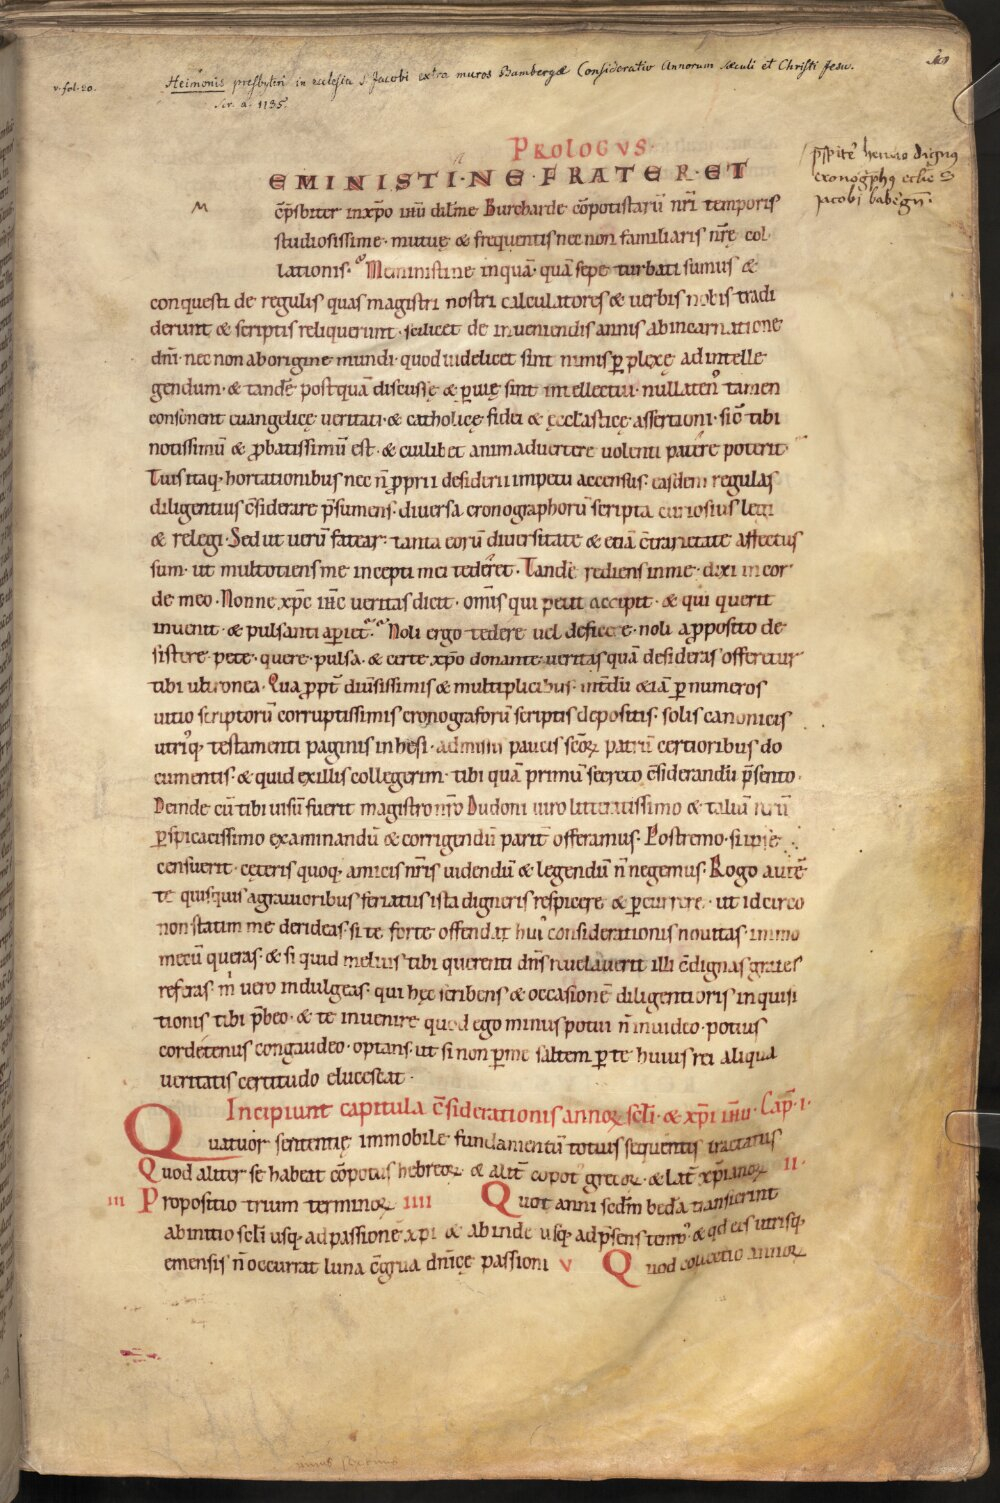 v. fol. 20.
Heimonis presbyteri in ecclesia S. Jacobi extra muros Bambergæ Consideratio Annorum sæculi et Christi Jesu.
Scr. a. 1135.
PROLOGVS
EMINISTI·NE·FRATER·ET
M
cōp̄sbiter inxp̄o ihū dil̄me Burcharde cōpotistarū nr̄i temporis
studiosissime· mutuę & frequentis nec non familiaris nr̄ę col
lationis· Meministine inquā· quā sepe turbati sumus &
conquesti de regulis quas magistri nostri calculatores & verbis nobis tradi
derunt & scriptis reliquerunt· scilicet de inveniendis annis ab incarnatione
dn̄i· nec non ab origine mundi· quod videlicet sint nimis ꝑplexę ad intelle
gendum· & tandē postquā discussę & ꝑvię sint intellectui· nullaten᾽ tamen
consonent evangelicę veritati· & catholicę fidei & ęcclasticę assertioni· sic̄ tibi
notissimū & ꝓbatissimū est· & cuilibet animadvertere volenti patere poterit
Tuis itaq; hortationibus nec n̄ ꝓprii desiderii impetu accensus· easdem regulas
diligentius c̄siderare p̄sumens· diversa cronographorū scripta curiosius legi
& relegi· Sed ut verū fatear· tanta eorū diversitate & etiā c̄trarietate affectus
sum· ut multotiens me incepti mei tederet· Tandē rediens in me· dixi in cor
de meo· Nonne xp̄c ihc̄ veritas dicit· om̄is qui petit accipit· & qui querit
invenit· & pulsanti apiet᾽· Noli ergo tedere vel deficere· noli a ꝓposito de
sistere· pete· quere· pulsa· & certe xp̄o donante veritas quā desideras offeretur
tibi ultronea· Qua ꝓpt᾽ div̄sissimis & multiplicibus· int̄dū &iā ꝑ numeros
vitio scriptorū corruptissimis cronograforū scriptis depositis· solis canonicis
utri᾽q; testamenti paginis inhesi· admistis paucis sc̄oꝝ patrū certioribus do
cumentis· & quid ex illis collegerim· tibi quā primū secreto c̄siderandū p̄sento·
Deinde cū tibi visū fuerit magistro nr̄o Dudoni viro litteratissimo & taliū rerū
ꝑspicacissimo examinandū & corrigendū parit᾽ offeramus· Postremo· si ipse
censuerit· cęteris quoq; amicis nr̄is videndū & legendū n̄ negemus· Rogo autē
te quisquis a gravioribus feriatus ista digneris respicere & ꝑcurrere· ut idcirco
non statim me derideas· si te forte offendat hui᾽ considerationis novitas· immo
mecū queras· & si quid melius tibi querenti dn̄s revelaverit illi c̄dignas grates
referas· m̄ vero indulgeas· qui hęc scribens & occasionē diligentioris inquisi
tionis tibi p̄beo· & te invenire quod ego minus potui n̄ invideo· potius
cordetenus congaudeo· optans· ut si non ꝑ me saltem ꝑ te huius rei aliqua
veritatis certitudo elucescat·
Incipiunt capitula c̄siderationis annoꝝ scl̄i· & xp̄i ihū· Cap̄· I·
Quatuor sententię immobile fundamentū totius sequentis tractatus
Quod aliter se habeat cōpotus hebreoꝝ· & alit᾽ cōpot᾽ grecoꝝ· & lat̄ xp̄ianoꝝ II·
III Propositio trium terminoꝝ IIII Quot anni sedm̄ bedā transierint
ab initio scl̄i usq; ad passionē xp̄i & ab inde usq; ad p̄sens temp᾽ & qd̄ eis utrisq;
emensis n̄ occurrat luna c̄grua dn̄icę passioni V Quod collectio annoꝝ
p̄sbite᾽ heimo dignus
cronog᾽phus ecl̄ie S
Jacobi babēgn̄·